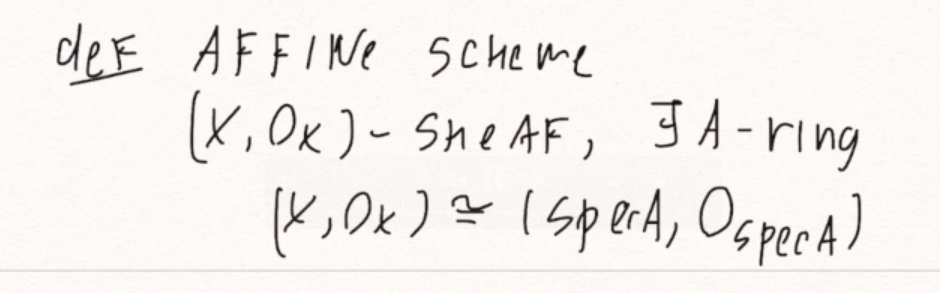 def AFFINe scheme
(X, Ox) - SheAF, ∃ A-ring
(X, Ox) ≅ (specA, OspecA)